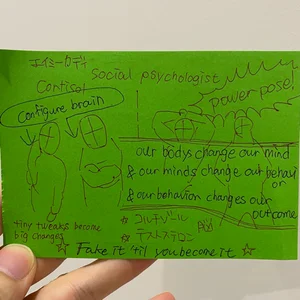 エイミーカディ
Social psychologist
Cortisol
Configure brain
power pose!
our bodys change our mind
& our minds change our behavi
or
& our behavior changes our
outcome
tiny tweaks become
big changes
☆ コルチゾール
☆ テストステロン
☆ Fake it 'til you become it ☆